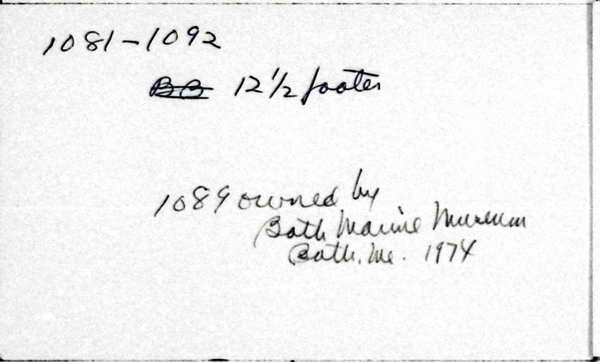 1081-1092
BB 12 1/2 footer
1089 owned by
Bath Marine Museum
Bath, Me. 1974